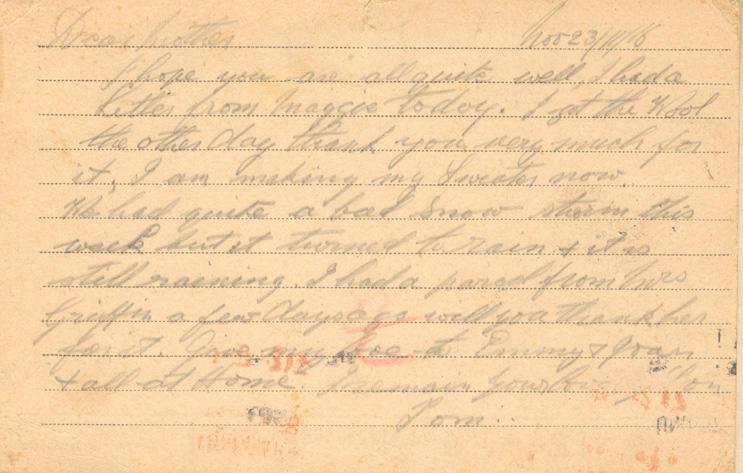 Dear Mother Nov 23/11/16
I hope you are all quite well, I had a
letter from Maggie today. I got the Wool
the other day thank you very much for
it, I am making my Sweater now.
We had quite a bad snow storm this
week but it turned to rain & it is
still raining. I had a parcel from Mrs
Griffin a few days ago will you thank her
for it. Give my love to Emmy &
& all at Home I remain your loving Son
Tom.